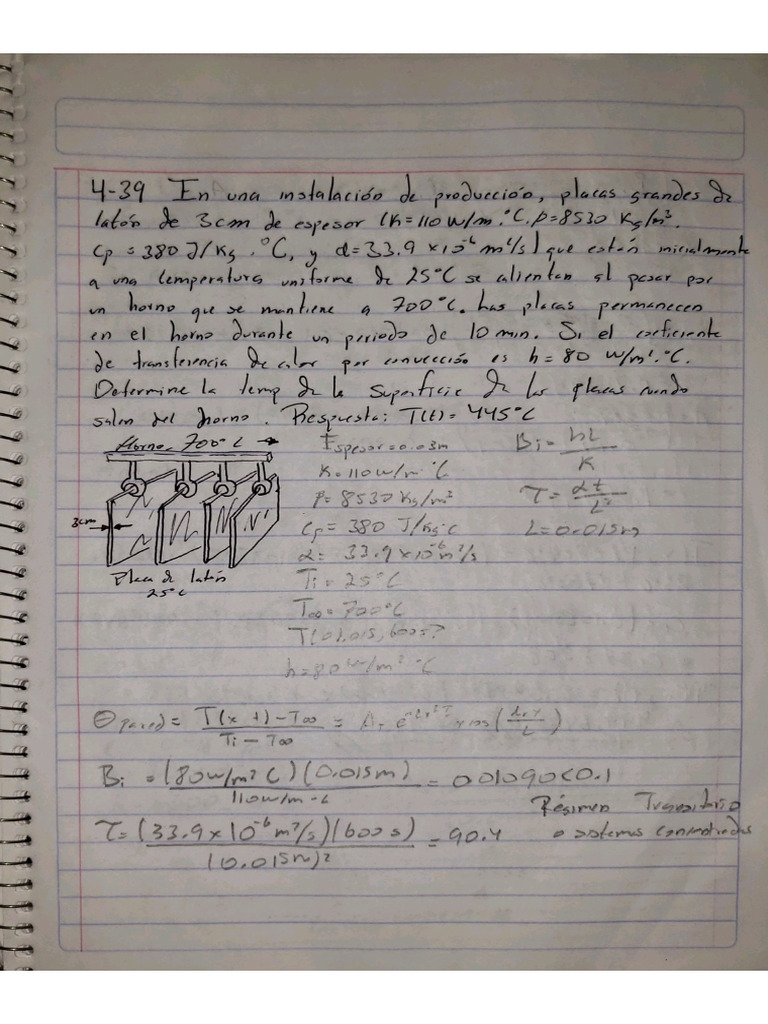 4-39 En una instalación de producción, placas grandes de
latón de 3cm de espesor (K=110 W/m.°C, ρ=8530 Kg/m³.
Cp=380 J/Kg.°C, y α=33.9 x10⁻⁶ m²/s) que están inicialmente
a una temperatura uniforme de 25°C se calientan al pasar por
un horno que se mantiene a 700°C. Las placas permanecen
en el horno durante un periodo de 10 min. Si el coeficiente
de transferencia de calor por convección es h=80 W/m².°C.
Determine la temp de la superficie de las placas cuando
salen del horno. Respuesta: T(t)=445°C
Horno, 700°C
3cm
Placa de latón
25°C
Espesor=0.03m
K=110 w/m °C
ρ=8530 Kg/m³
Cp=380 J/Kg°C
α=33.9x10⁻⁶m²/s
Ti=25°C
T∞=700°C
T(0.015,600s?
h=80 w/m² °C
Bi=hL/K
τ=αt/L²
L=0.015m
θpared = T(x t)-T∞/Ti-T∞ =
Bi = (80w/m²C)(0.015m)/110w/m-C = 0.01090<0.1
τ=(33.9x10⁻⁶m²/s)(600s)/(0.015m)² = 90.4
Régimen Transitorio
o sistemas